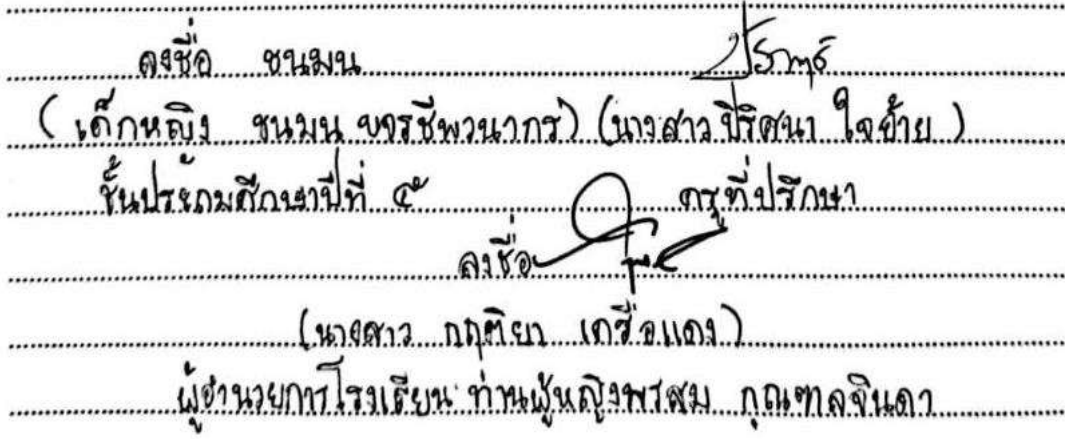 ลงชื่อ ชนมน
( เด็กหญิง ชนมน ขจรชีพวนากร) (นางสาว ปิริศนา ใจย้าย )
ชั้นประถมศึกษาปีที่ ๕ ครูที่ปรึกษา
ลงชื่อ
(นางสาว กฤติยา เครือแดง)
ผู้อำนวยการโรงเรียน ท่านผู้หญิงพรสม กุณฑลจินดา